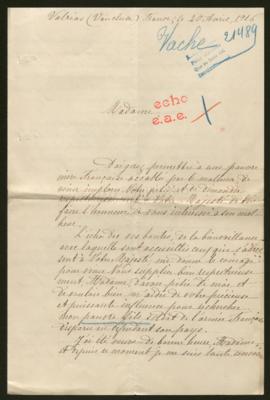 Valréas (Vaucluse) France, le 20 Avril 1916
Vache
21489
echo
e.a.e.
Madame
Daignez permettre à une pauvre
mère Française accablée par le malheur de
venir implorer Votre pitié, et de demander
respectueusement à Votre Majesté de
faire l'honneur de vous intéresser à son mal-
heur.
L'écho des vos bontés, de la bienveillance
avec laquelle sont accueillis ceux qui s'adres-
sent à Votre Majesté, me donne le courage
pour venir Vous supplier bien respectueuse-
ment, Madame, d'avoir pitié de moi, et
de vouloir bien m'aider de votre précieuse
et puissante influence pour rechercher
mon pauvre fils soldat de l'armée Française
disparu en défendant son pays.
J'ai été veuve de bonne heure, Madame,
et depuis ce moment je me suis toute